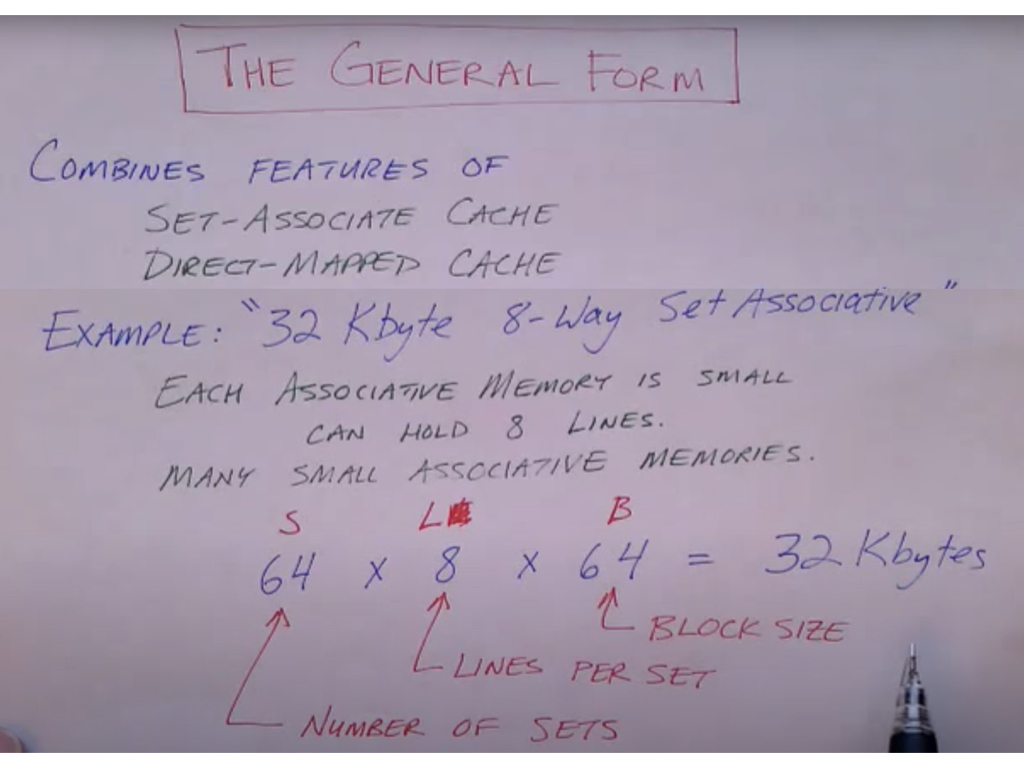 THE GENERAL FORM
COMBINES FEATURES OF
SET-ASSOCIATE CACHE
DIRECT-MAPPED CACHE
EXAMPLE: "32 Kbyte 8-Way Set Associative"
EACH ASSOCIATIVE MEMORY IS SMALL
CAN HOLD 8 LINES.
MANY SMALL ASSOCIATIVE MEMORIES.
S L B
64 x 8 x 64 = 32 Kbytes
BLOCK SIZE
LINES PER SET
NUMBER OF SETS